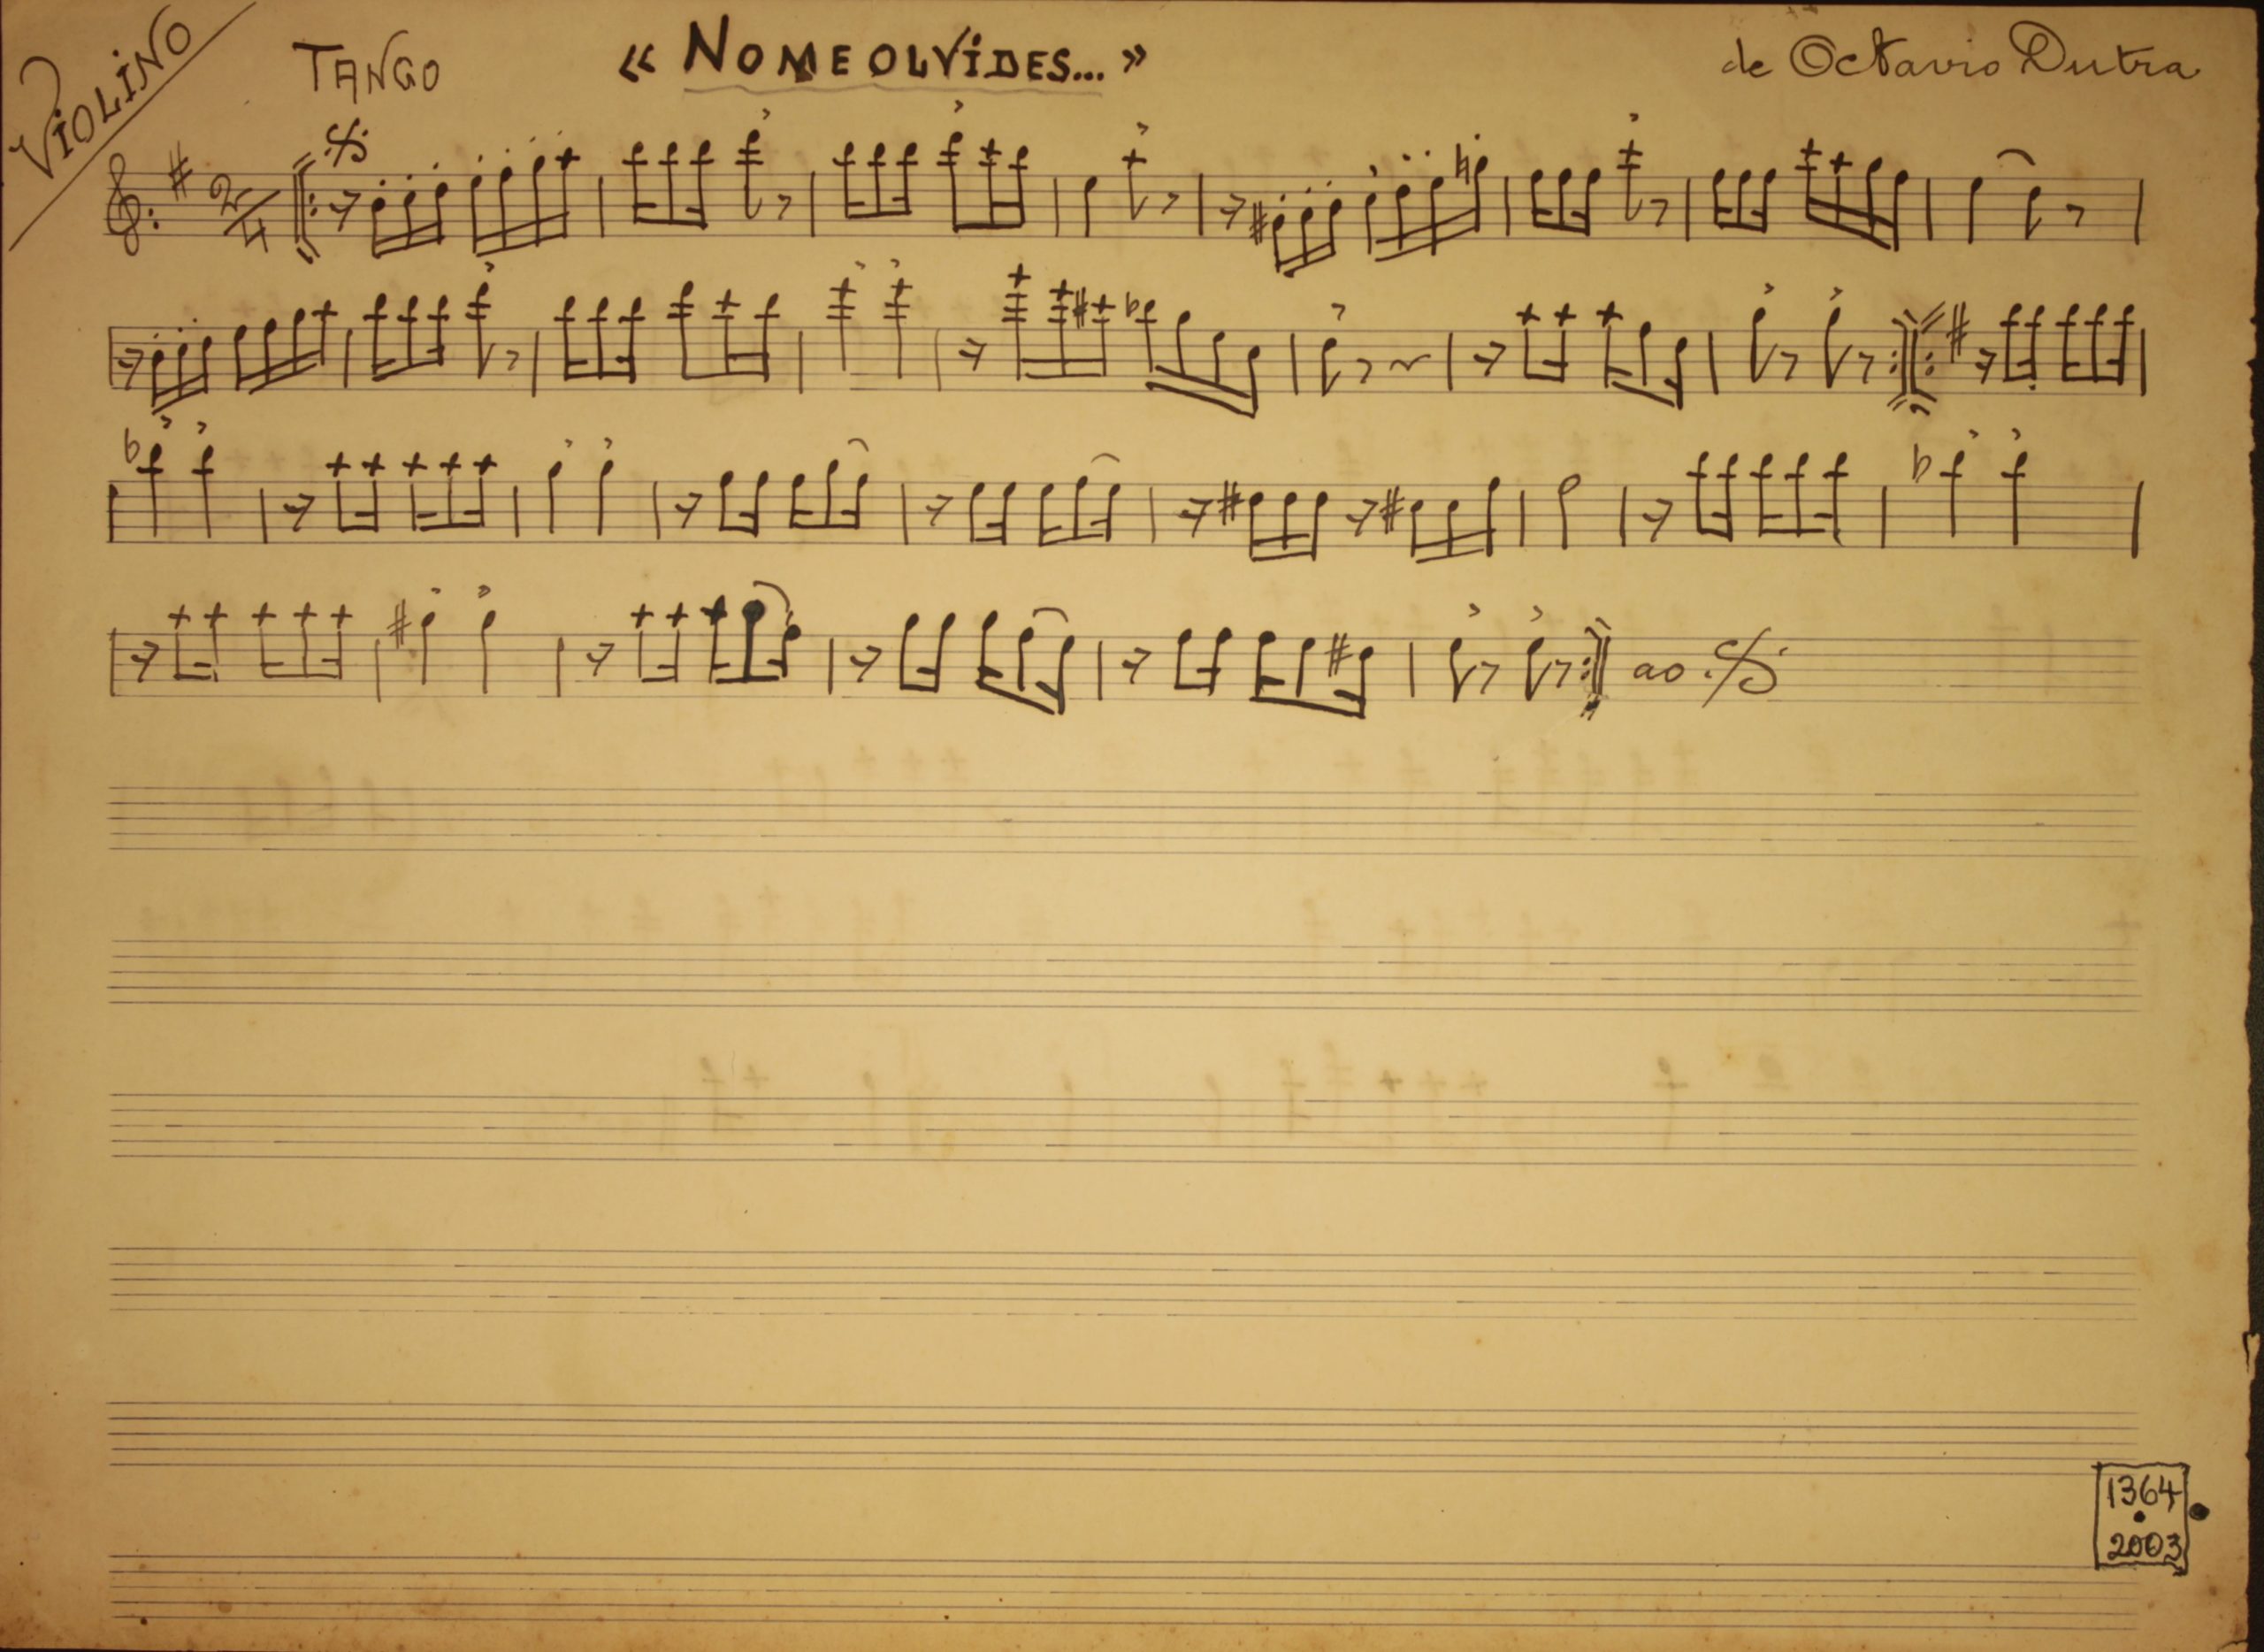 VIOLINO
TANGO
« NO ME OLVIDES... »
de Octavio Dutra
2/4
ao
1364
2003